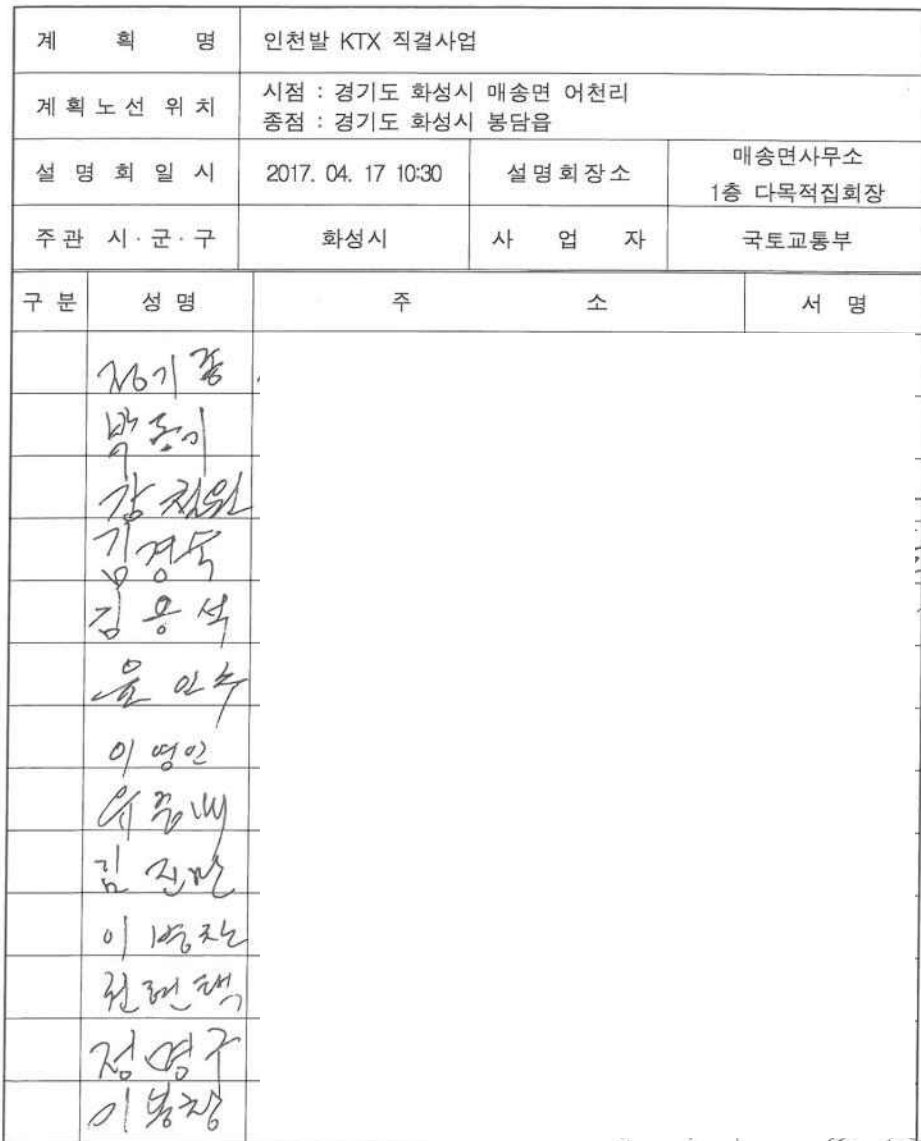 계 획 명 인천발 KTX 직결사업
계획노선 위치 시점 : 경기도 화성시 매송면 어천리
종점 : 경기도 화성시 봉담읍
설 명 회 일 시 2017. 04. 17 10:30 설명회장소 매송면사무소
1층 다목적집회장
주관 시·군·구 화성시 사 업 자 국토교통부
구 분 성 명 주 소 서 명
정기종
박동기
강칠원
김경숙
김용석
윤인수
이영인
김진만
이병찬
권현택
정명구
이봉창